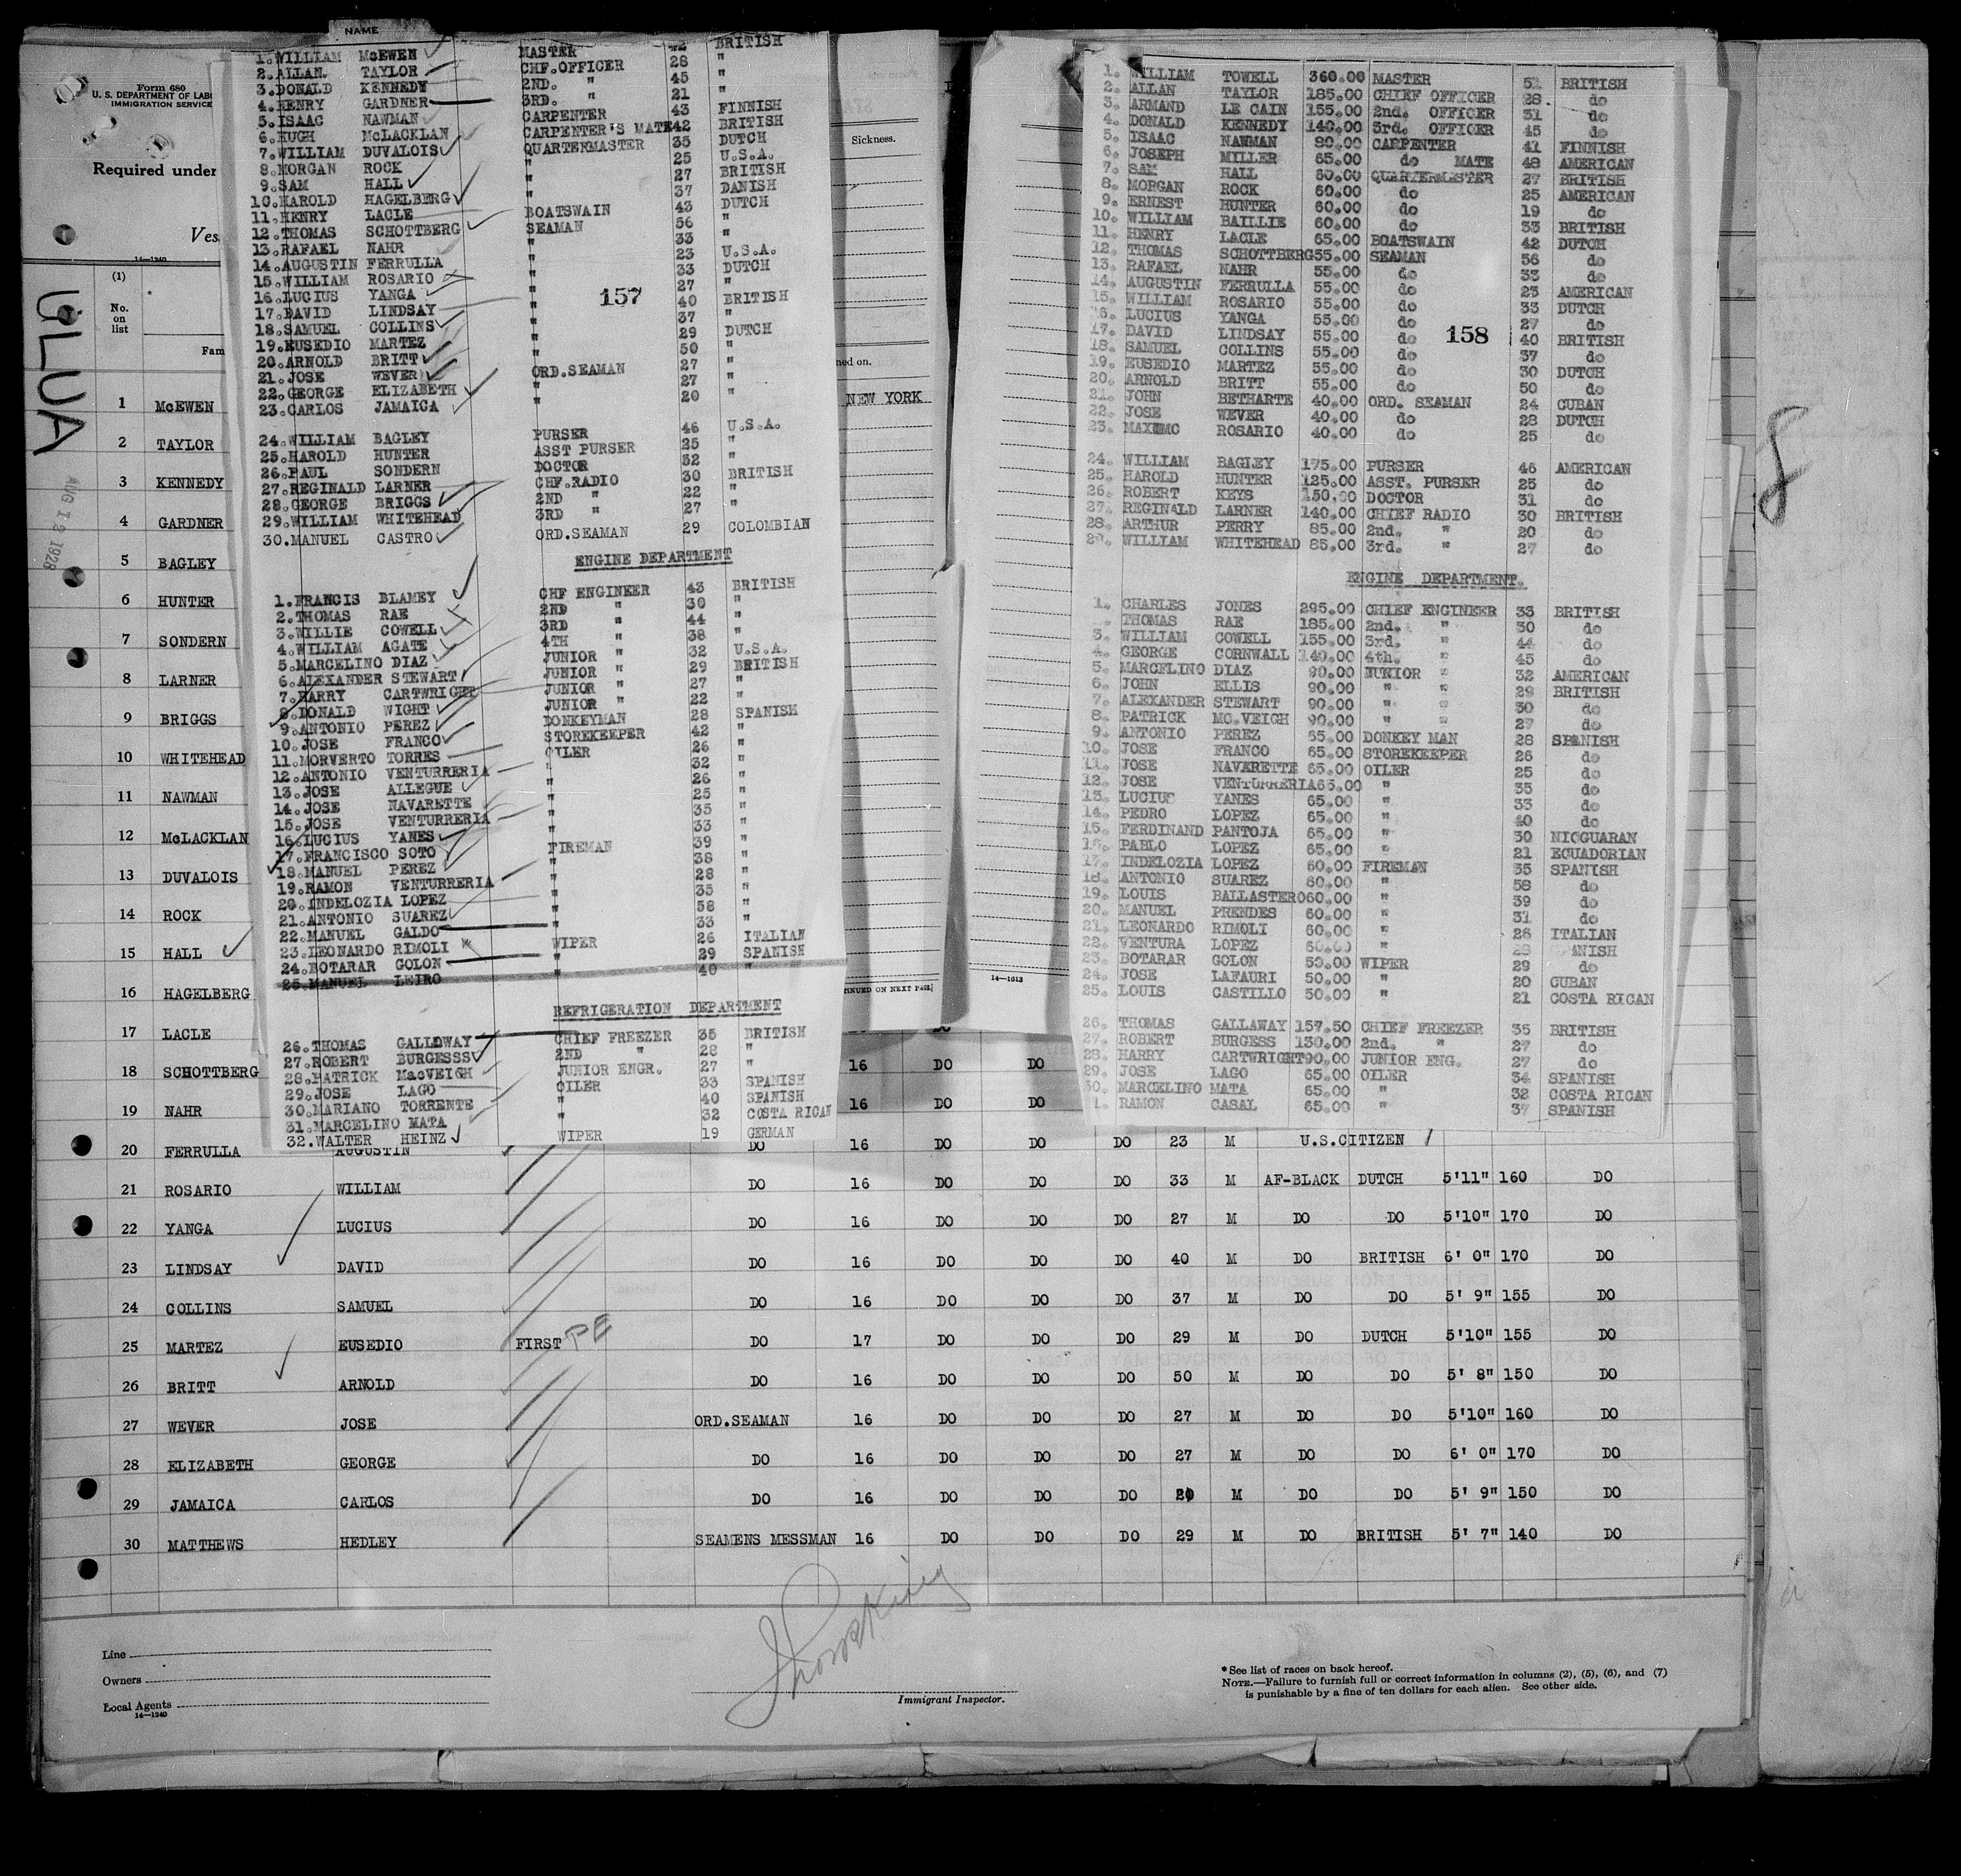 Form 680
U. S. DEPARTMENT OF LAB
IMMIGRATION SERVICE
Required under
Ves
14—1240
ULUA
AUG 12 1928
(1)
No.
on
list
Fam
NAME
1. WILLIAM McEWEN MASTER 42 BRITISH
2. ALLAN. TAYLOR CHF.OFFICER 28 "
3. DONALD KENNEDY 2ND. " 45 "
4. HENRY GARDNER 3RD. " 21 "
5. ISAAC NAWMAN CARPENTER 43 FINNISH
6. HUGH McLACKLAN CARPENTER'S MATE 42 BRITISH
7. WILLIAM DUVALOIS QUARTERMASTER 35 DUTCH
8. MORGAN ROCK " 25 U.S.A.
9. SAM HALL " 27 BRITISH
10. HAROLD HAGELBERG " 37 DANISH
11. HENRY LACLE BOATSWAIN 43 DUTCH
12. THOMAS SCHOTTBERG SEAMAN 56 "
13. RAFAEL NAHR " 33 "
14. AUGUSTIN FERRULLA " 23 U.S.A.
15. WILLIAM ROSARIO " 33 DUTCH
16. LUCIUS YANGA " 27 "
17. DAVID LINDSAY " 40 BRITISH
18. SAMUEL COLLINS " 37 "
19. EUSEDIO MARTEZ " 29 DUTCH
20. ARNOLD BRITT " 50 "
21. JOSE WEVER ORD.SEAMAN 27 "
22. GEORGE ELIZABETH " 27 "
23. CARLOS JAMAICA " 20 "
157
24. WILLIAM BAGLEY PURSER 46 U.S.A.
25. HAROLD HUNTER ASST PURSER 25 "
26. PAUL SONDERN DOCTOR 52 "
27. REGINALD LARNER CHF.RADIO 30 BRITISH
28. GEORGE BRIGGS 2ND " 22 "
29. WILLIAM WHITEHEAD 3RD " 27 "
30. MANUEL CASTRO ORD.SEAMAN 29 COLOMBIAN
ENGINE DEPARTMENT
1. FRANCIS BLAMEY CHF ENGINEER 43 BRITISH
2. THOMAS RAE 2ND " 30 "
3. WILLIE COWELL 3RD " 44 "
4. WILLIAM AGATE 4TH " 38 "
5. MARCELINO DIAZ JUNIOR " 32 U.S.A.
6. ALEXANDER STEWART JUNIOR " 29 BRITISH
7. HARRY CARTWRIGHT JUNIOR " 27 "
8. DONALD WIGHT JUNIOR " 22 "
9. ANTONIO PEREZ DONKEYMAN 28 SPANISH
10. JOSE FRANCO STOREKEEPER 42 "
11. MORVERTO TORRES OILER 26 "
12. ANTONIO VENTURRERIA " 32 "
13. JOSE ALLEGUE " 26 "
14. JOSE NAVARETTE " 25 "
15. JOSE VENTURRERIA " 35 "
16. LUCIUS YANES " 33 "
17. FRANCISCO SOTO FIREMAN 39 "
18. MANUEL PEREZ " 38 "
19. RAMON VENTURRERIA " 28 "
20. INDELOZIA LOPEZ " 35 "
21. ANTONIO SUAREZ " 58 "
22. MANUEL GALDO " 33 "
23. LEONARDO RIMOLI WIPER 26 ITALIAN
24. BOTARAR GOLON " 29 SPANISH
25. MANUEL LEIRO " 40 "
REFRIGERATION DEPARTMENT
26. THOMAS GALLOWAY CHIEF FREEZER 35 BRITISH
27. ROBERT BURGESSS 2ND " 28 "
28. PATRICK MacVEIGH JUNIOR ENGR. 27 "
29. JOSE LAGO OILER 33 SPANISH
30. MARIANO TORRENTE " 40 SPANISH
31. MARCELINO MATA " 32 COSTA RICAN
32. WALTER HEINZ WIPER 19 GERMAN
Sickness.
ned on.
NEW YORK
INUED ON NEXT PAGE]
14—1613
1. WILLIAM TOWELL 360.00 MASTER 51 BRITISH
2. ALLAN TAYLOR 185.00 CHIEF OFFICER 28. do
3. ARMAND LE CAIN 155.00 2nd. OFFICER 31 do
4. DONALD KENNEDY 140.00 3rd. OFFICER 45 do
5. ISAAC NAWMAN 80.00 CARPENTER 41 FINNISH
6. JOSEPH MILLER 65.00 do MATE 48 AMERICAN
7. SAM HALL 60.00 QUARTERMASTER 27 BRITISH
8. MORGAN ROCK 60.00 do 25 AMERICAN
9. ERNEST HUNTER 60.00 do 19 do
10. WILLIAM BAILLIE 60.00 do 33 BRITISH
11. HENRY LACLE 65.00 BOATSWAIN 42 DUTCH
12. THOMAS SCHOTTBERG 55.00 SEAMAN 56 do
13. RAFAEL NAHR 55.00 do 33 do
14. AUGUSTIN FERRULLA 55.00 do 23 AMERICAN
15. WILLIAM ROSARIO 55.00 do 33 DUTCH
16. LUCIUS YANGA 55.00 do 27 do
17. DAVID LINDSAY 55.00 do 40 BRITISH
18. SAMUEL COLLINS 55.00 do 37 do
19. EUSEDIO MARTEZ 55.00 do 30 DUTCH
20. ARNOLD BRITT 55.00 do 50 do
21. JOHN BETHARTE 40.00 ORD. SEAMAN 24 CUBAN
22. JOSE WEVER 40.00 do 28 DUTCH
23. ROSARIO 40.00 do 25 do
158
24. WILLIAM BAGLEY 175.00 PURSER 46 AMERICAN
25. HAROLD HUNTER 125.00 ASST. PURSER 25 do
26. ROBERT KEYS 150.00 DOCTOR 31 do
27. REGINALD LARNER 140.00 CHIEF RADIO 30 BRITISH
28. ARTHUR PERRY 85.00 2nd. " 20 do
29. WILLIAM WHITEHEAD 85.00 3rd. " 27 do
ENGINE DEPARTMENT.
1. CHARLES JONES 295.00 CHIEF ENGINEER 33 BRITISH
THOMAS RAE 185.00 2nd. " 30 do
3. WILLIAM COWELL 155.00 3rd. " 44 do
4. GEORGE CORNWALL 140.00 4th. " 45 do
5. MARCELINO DIAZ 90.00 JUNIOR " 32 AMERICAN
6. JOHN ELLIS 90.00 " " 29 BRITISH
7. ALEXANDER STEWART 90.00 " " 30 do
8. PATRICK MC.VEIGH 90.00 " " 27 do
9. ANTONIO PEREZ 65.00 DONKEY MAN 28 SPANISH
10. JOSE FRANCO 65.00 STOREKEEPER 26 do
11. JOSE NAVERETTE 65.00 OILER 25 do
12. JOSE VENTURRERIA 65.00 " 35 do
13. LUCIUS YANES 65.00 " 33 do
14. PEDRO LOPEZ 65.00 " 40 do
15. FERDINAND PANTOJA 65.00 " 30 NICGUARAN
16. PABLO LOPEZ 65.00 " 21 ECUADORIAN
17. INDELOZIA LOPEZ 60.00 FIREMAN 35 SPANISH
18. ANTONIO SUAREZ 60.00 " 58 do
19. LOUIS BALLASTERO 60.00 " 39 do
20. MANUEL PRENDES 60.00 " 31 do
21. LEONARDO RIMOLI 60.00 " 26 ITALIAN
22. VENTURA LOPEZ 60.00 " 28 ANISH
23. BOTARAR GOLON 50.00 WIPER 29 do
24. JOSE LAFAURI 50.00 " 20 CUBAN
25. LOUIS CASTILLO 50.00 " 21 COSTA RICAN
26. THOMAS GALLAWAY 157.50 CHIEF FREEZER 35 BRITISH
27. ROBERT BURGESS 130.00 2nd. " 27 do
28. HARRY CARTWRIGHT 90.00 JUNIOR ENG. 27 do
29. JOSE LAGO 65.00 OILER 34 SPANISH
30. MARCELINO MATA 65.00 " 32 COSTA RICAN
1. RAMON CASAL 65.00 " 37 SPANISH
8
1 McEWEN
2 TAYLOR
3 KENNEDY
4 GARDNER
5 BAGLEY
6 HUNTER
7 SONDERN
8 LARNER
9 BRIGGS
10 WHITEHEAD
11 NAWMAN
12 McLACKLAN
13 DUVALOIS
14 ROCK
15 HALL
16 HAGELBERG
17 LACLE
18 SCHOTTBERG 16 DO DO
19 NAHR 16 DO DO
20 FERRULLA AUGUSTIN DO 16 DO DO DO 23 M U.S.CITIZEN
21 ROSARIO WILLIAM DO 16 DO DO DO 33 M AF-BLACK DUTCH 5'11" 160 DO
22 YANGA LUCIUS DO 16 DO DO DO 27 M DO DO 5'10" 170 DO
23 LINDSAY DAVID DO 16 DO DO DO 40 M DO BRITISH 6' 0" 170 DO
24 COLLINS SAMUEL DO 16 DO DO DO 37 M DO DO 5' 9" 155 DO
25 MARTEZ EUSEDIO FIRST PE DO 17 DO DO DO 29 M DO DUTCH 5'10" 155 DO
26 BRITT ARNOLD DO 16 DO DO DO 50 M DO DO 5' 8" 150 DO
27 WEVER JOSE ORD.SEAMAN 16 DO DO DO 27 M DO DO 5'10" 160 DO
28 ELIZABETH GEORGE DO 16 DO DO DO 27 M DO DO 6' 0" 170 DO
29 JAMAICA CARLOS DO 16 DO DO DO 20 M DO DO 5' 9" 150 DO
30 MATTHEWS HEDLEY SEAMENS MESSMAN 16 DO DO DO 29 M DO BRITISH 5' 7" 140 DO
Line
Owners
Local Agents
14—1240
Immigrant Inspector.
*See list of races on back hereof.
NOTE.—Failure to furnish full or correct information in columns (2), (5), (6), and (7)
is punishable by a fine of ten dollars for each alien. See other side.